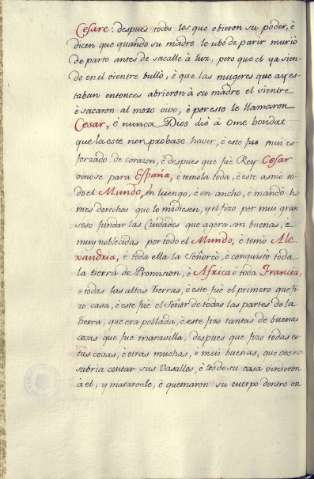 Cesare: despues todos los que obieron su poder, è
dicen que quando su madre le ubo de parir murió
de parto antes de sacalle à luz, pero que el ya sien-
do en el vientre bullò, è que las mugeres que ay es-
taban entonces abrieron à su madre el vientre
è sacaron al mozo vivo, è por esto le llamaron
Cesar, è nunca Dios diò à ome bondat
que la este non probase haver, è este fue mui es-
forzado de corazon, è despues que fuè Rey Cesar
vinose para España, è tomola toda, è este asmò to-
do el Mundo, en luengo, è en ancho, è mandò ho-
mes derechos que lo midiesen, y el fizo por mui gran
seso fundar las Ciudades que agora son buenas, è
muy noblecidas por todo el Mundo, è tomò Ale-
xandria, è toda ella la Señoreò, è conquistò toda
la tierra de Promision, è Africa è toda Francia,
è todas las altas tierras, è este fuè el primero que fi-
zo casa, è este fuè el Señor de todas las partes de la
tierra, que era poblada, è este fizo tantas de buenas
cosas que fue maravilla: despues que fizo todas es-
tas cosas, è otras muchas, è mui buenas, que
contar sus Vasallos, è los de su casa vinieron
à el, y mataronle, è quemaron su cuerpo dentro en